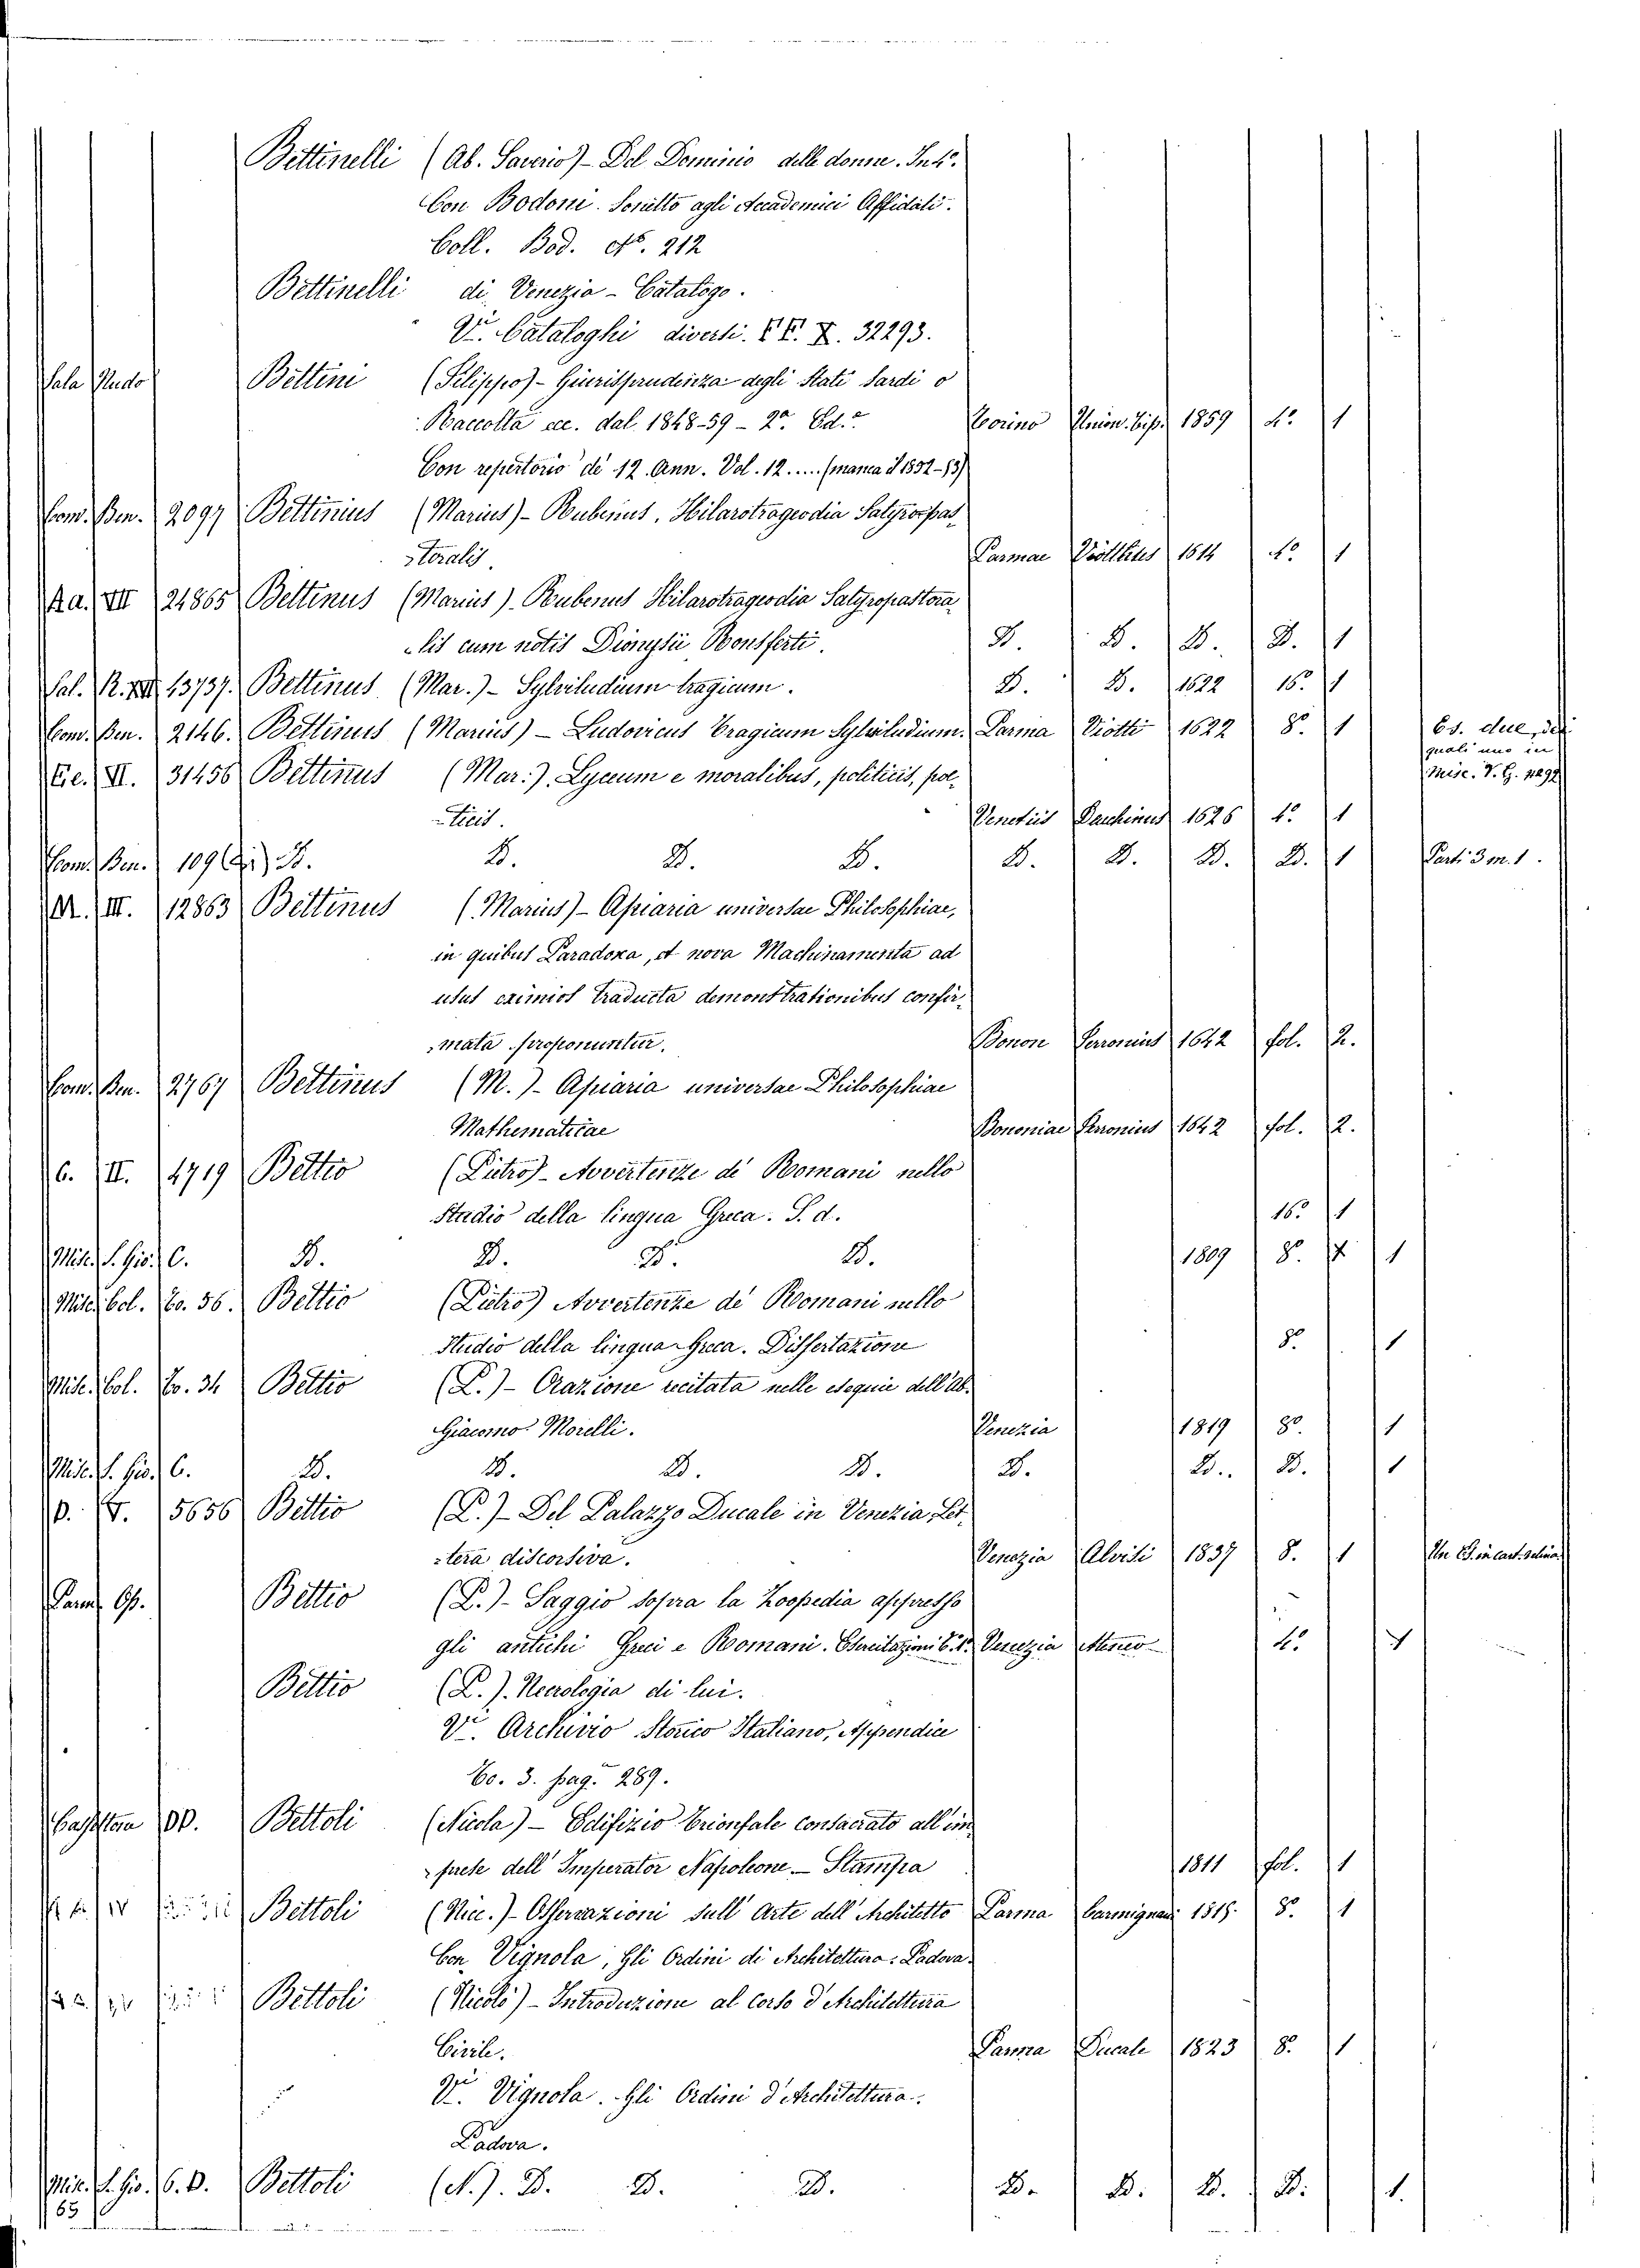 Bettinelli (Ab. Saverio) - Del Dominio delle donne. Int.
Con Bodoni. Sonetto agli Accademici Affidati.
Coll. Bod. No. 212
Bettinelli di Venezia - Catalogo.
Vi. Cataloghi diversi. 32293.
Sala Bettini (Filippo) - Giurisprudenza degli Stati Sardi o
Raccolta ecc. dal 1848-59 - 2a. Ed.e Torino Union. tip. 1859 4o 1
Con repertorio di 12. Ann. Vol. 12 .... (manca il 1852-53)
Com. Ben. 2097 Bettinius (Marius) - Rubenus, Hilarotrageodia Satyropas
toralis Parmae Viottus 1614 4o 1
Ra. VII 24865 Bettinus (Marius). Rubenus Hilarotrageodia Satyropastora
lis cum notis Dionysii Ronsferti. D. D. D. D. 1
Sal. R. XIII 13737. Bettinus (Mar.) - Sylviludium tragicum. D. D. 1622 16o 1
Com. Ben. 2146. Bettinus (Marius) - Ludovicus Tragicum Sylviludium. Parma Viotti 1622 8o 1 Es. due, dei
quali uno in
Misc. V. G.
VI. 31456 Bettinus (Mar.). Lyceum e moralibus, politicis, poe
ticis. Venetiis Dauchinus 1626 4o 1
Com. Ben. 109 D. D. D. D. D. D. D. D. 1 Parti 3 m. 1.
III. 12863 Bettinus (Marius) - Apiaria universae Philosophiae,
in quibus Paradoxa, et nova Machinamenta ad
usus eximios traducta demonstrationibus confir
mata proponuntur. Bonon Ferronius 1642 fol. 2.
Com. Ben. 2767 Bettinus (M.) - Apiaria universae Philosophiae
Mathematicae Bononiae Ferronius 1642 fol. 2.
C. II. 4719 Bettio (Pietro) - Avvertenze di Romani nello
Studio della lingua Greca. S. d. 16o 1
Misc. S. Gio. C. D. D. D. D. 1809 8o 1
Misc. Col. To. 56. Bettio (Pietro) Avvertenze de Romani nello
Studio della lingua Greca. Dissertazione 8o 1
Misc. Col. To. 34 Bettio (P.) - Orazione recitata nelle esequie dell'Ab.
Giacomo Morelli. Venezia 1819 8o 1
Misc. S. Gio. C. D. D. D. D. D. D. D. 1
D. V. 5656 Bettio (P.) - Del Palazzo Ducale in Venezia Let
tera discorsiva. Venezia Alvisi 1837 8. 1 Un Es. in cart. velina
Bettio (P.) - Saggio sopra la Zoopedia appresso
gli antichi Greci e Romani. Esercitazioni Venezia Ateneo 4o 1
Bettio (P.). Necrologia di lui.
Vi. Archivio Storico Italiano, Appendice
To. 3. pag. 289.
DD. Bettoli (Nicola) - Edifizio trionfale consacrato all'im
prese dell'Imperator Napoleone - Stampa 1811 fol. 1
Bettoli (Nic.) - Osservazioni sull'Arte dell'Architetto Parma Carmignani 1815. 8o 1
Con Vignola, Gli Ordini di Architettura: Padova.
Bettoli (Nicolò) - Introduzione al corso d'Architettura
Civile. Parma Ducale 1823 8o 1
Vi. Vignola. Gli Ordini d'Architettura.
Padova.
Misc. S. Gio. C. D. Bettoli (N.). D. D. D. D. D. D. D. 1.
65